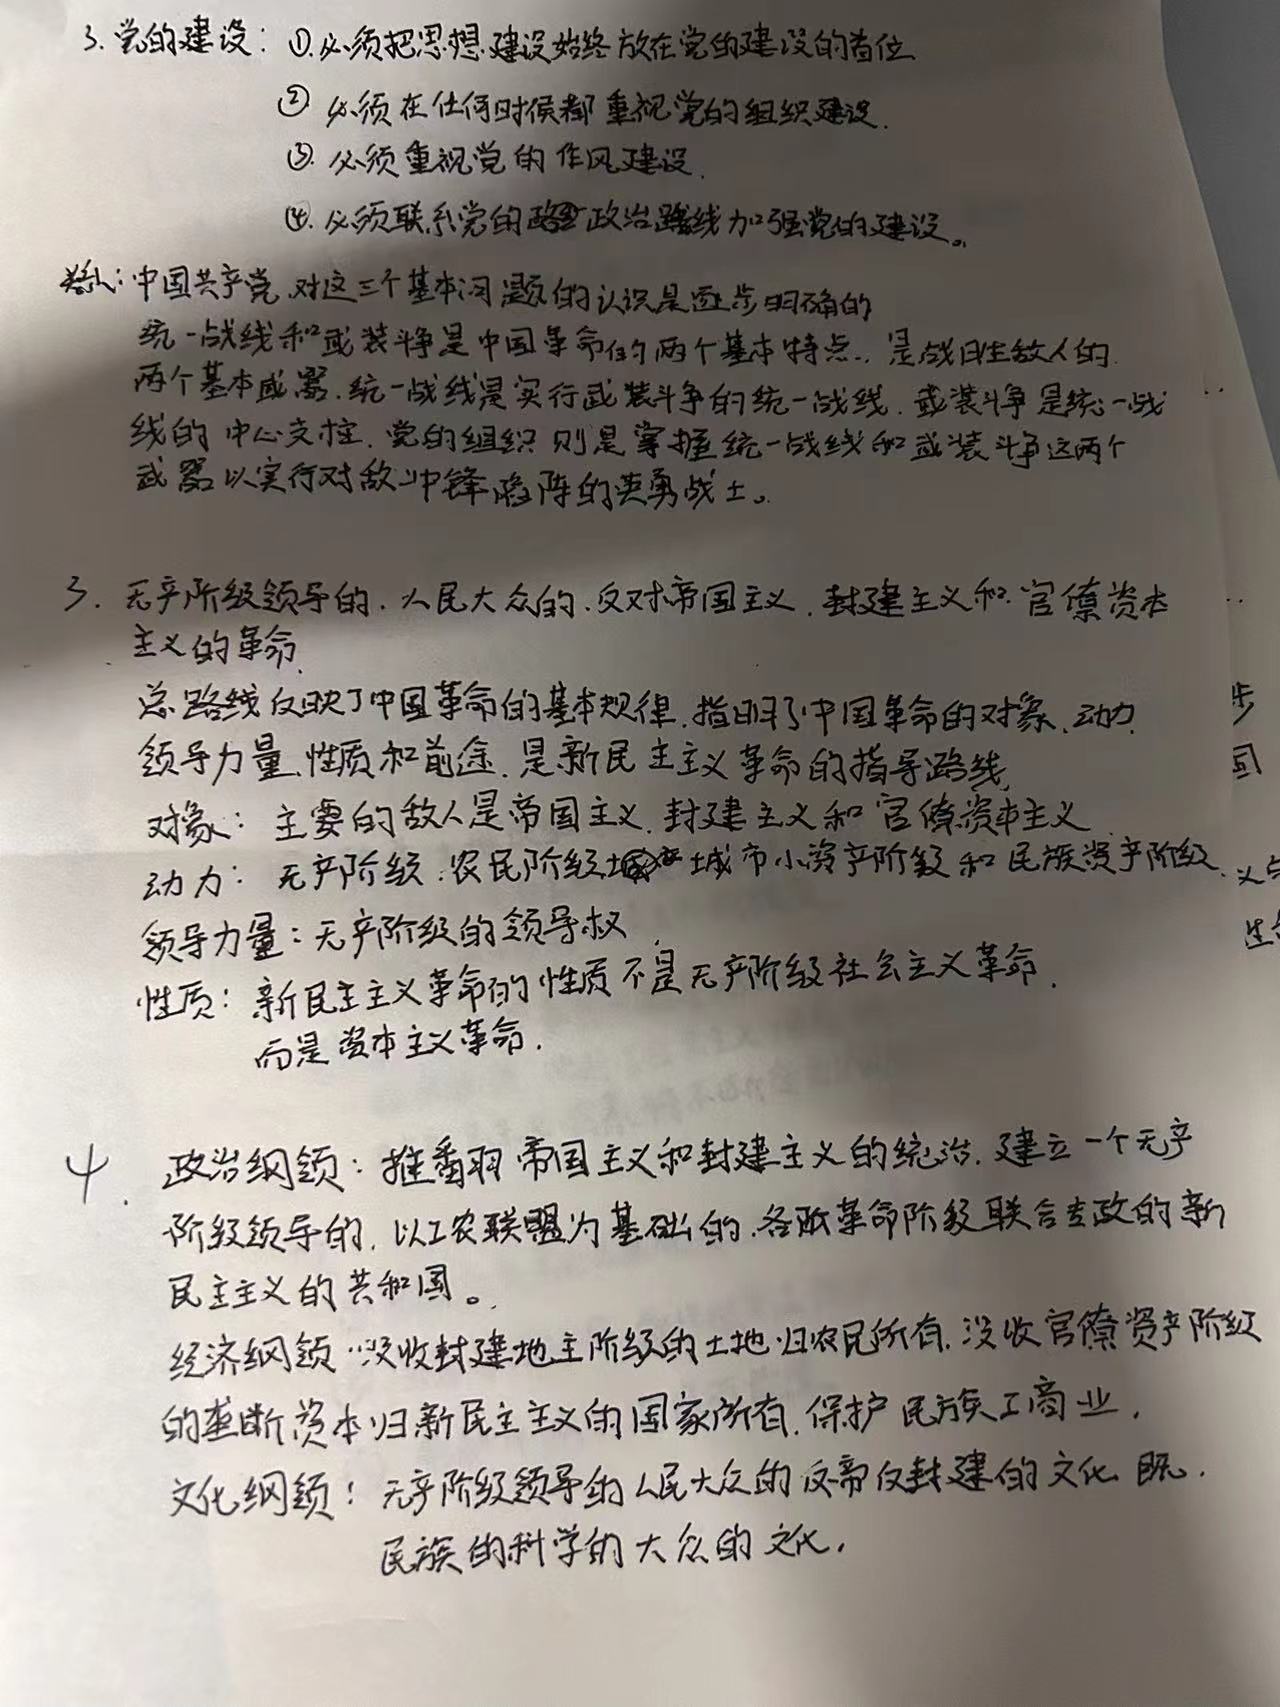 3. 党的建设：①必须把思想建设始终放在党的建设的首位
② 必须在任何时候都重视党的组织建设.
③. 必须重视党的作风建设.
④. 必须联系党的政治路线加强党的建设。
中国共产党对这三个基本问题的认识是逐步明确的
统一战线和武装斗争是中国革命的两个基本特点., 是战胜敌人的.
两个基本武器. 统一战线是实行武装斗争的统一战线. 武装斗争是统一战
线的中心支柱. 党的组织则是掌握统一战线和武装斗争这两个
武器以实行对敌冲锋陷阵的英勇战士。
3. 无产阶级领导的. 人民大众的. 反对帝国主义. 封建主义和官僚资本
主义的革命.
总路线反映了中国革命的基本规律. 指明了中国革命的对象、动力.
领导力量、性质和前途. 是新民主主义革命的指导路线.
对象: 主要的敌人是帝国主义. 封建主义和官僚资本主义
动力: 无产阶级. 农民阶级. 城市小资产阶级和民族资产阶级.
领导力量: 无产阶级的领导权.
性质: 新民主主义革命的性质不是无产阶级社会主义革命.
而是资本主义革命.
4. 政治纲领: 推翻帝国主义和封建主义的统治. 建立一个无产
阶级领导的. 以工农联盟为基础的. 各阶革命阶级联合专政的新
民主主义的共和国。
经济纲领: 没收封建地主阶级的土地归农民所有. 没收官僚资产阶级
的垄断资本归新民主主义的国家所有. 保护民族工商业.
文化纲领: 无产阶级领导的人民大众的反帝反封建的文化. 既.
民族的科学的大众的文化.
步
国